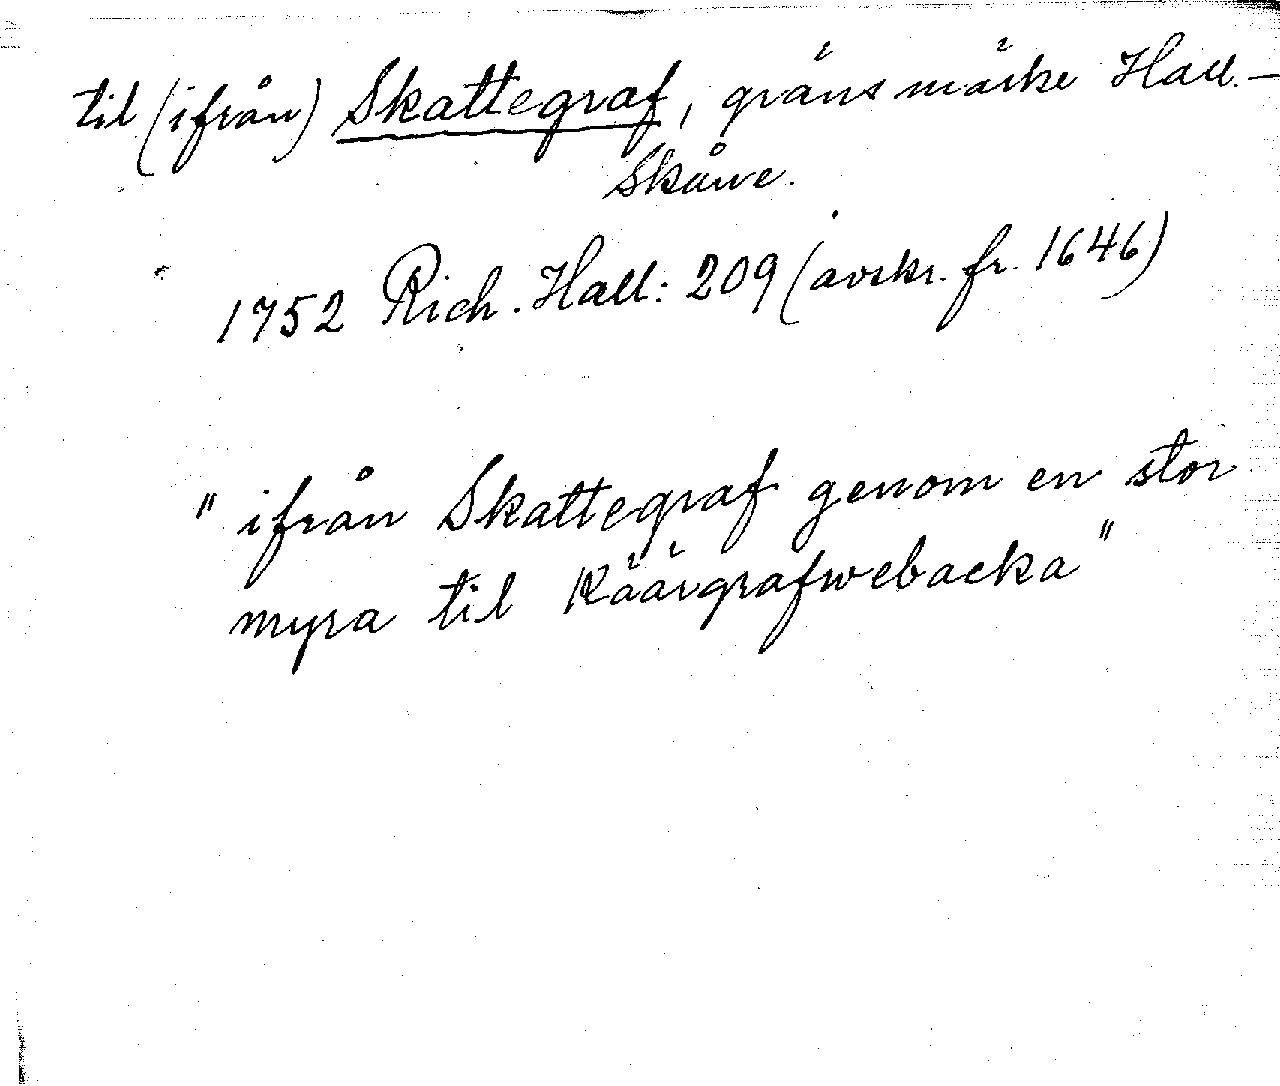 til (ifrån) Skattegraf, gränsmärke Hall.-
Skåne.
1752 Rich. Hall: 209 (avskr. fr. 1646)
"ifrån Skattegraf genom en stor
myra til Räärgrafwebacka"